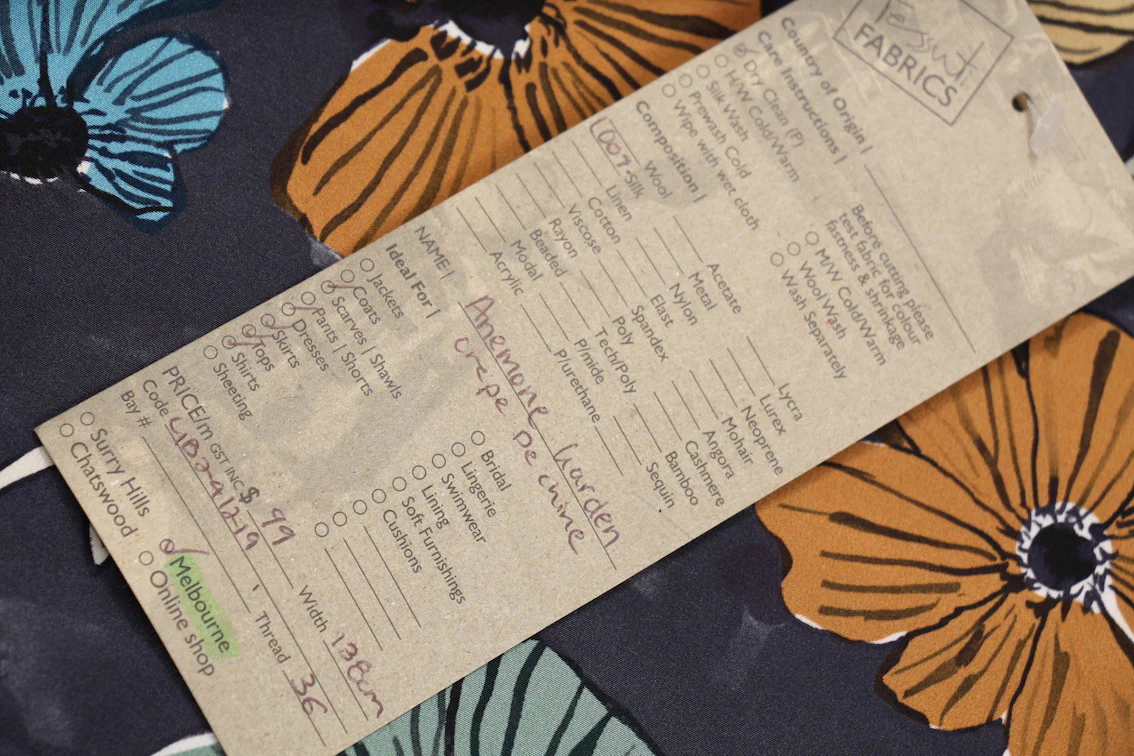 Tessuti
FABRICS
Country of Origin |
Care Instructions |
Dry Clean (P)
H/W Cold/Warm
Silk Wash
Prewash Cold
Wipe with wet cloth
Before cutting please
test fabric for colour
fastness & shrinkage
M/W Cold/Warm
Wool Wash
Wash Separately
Composition |
Wool
100% Silk
Linen
Cotton
Viscose
Rayon
Beaded
Modal
Acrylic
Acetate
Metal
Nylon
Elast
Spandex
Poly
Tech/Poly
P/mide
P/urethane
Lycra
Lurex
Neoprene
Mohair
Angora
Cashmere
Bamboo
Sequin
NAME | Anemone Garden
crepe De chine
Ideal For |
Jackets
Coats
Scarves | Shawls
Pants | Shorts
Dresses
Skirts
Tops
Shirts
Sheeting
Bridal
Lingerie
Swimwear
Lining
Soft Furnishings
Cushions
PRICE/m GST INC $ 99 Width 138cm
Code Thread 36
Bay #
Surry Hills Melbourne
Chatswood Online shop